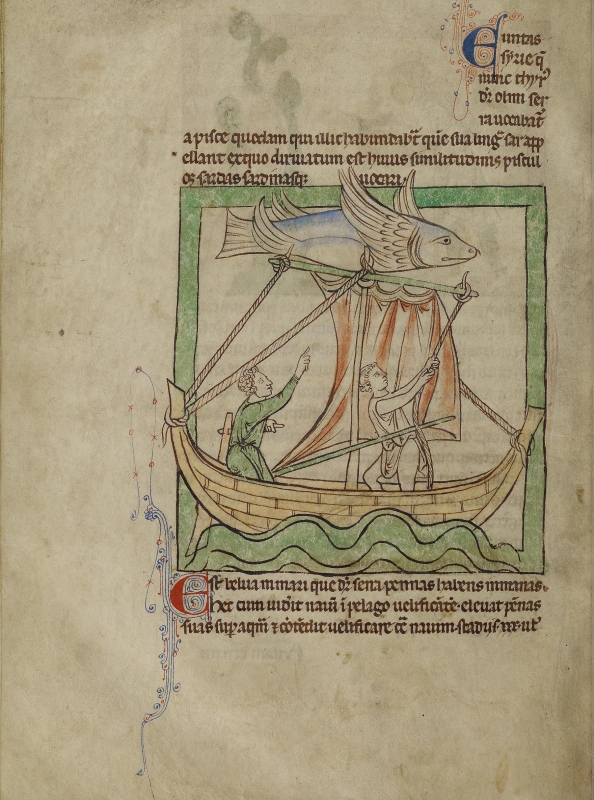 Ciuitas
syrie q̄
nunc thyrꝰ
dr̄ olim ser
ra uocabat̄
a pisce quodam qui illic habundabat̄ quē sua linḡ sar app
ellant ex quo diriuatum est huius similitudinis piscicul
os sardas sardinasqꝫ uocari.
Est belua in mari que dr̄ serra pennas habens inmanas.
hec cum uidit̄ nauim ī pelago uelificātē. eleuat pēnas
suas sup̄ aqm̄ ⁊ cōtēdit uelificare cc̄ nauim stadiis xxx. ul̄